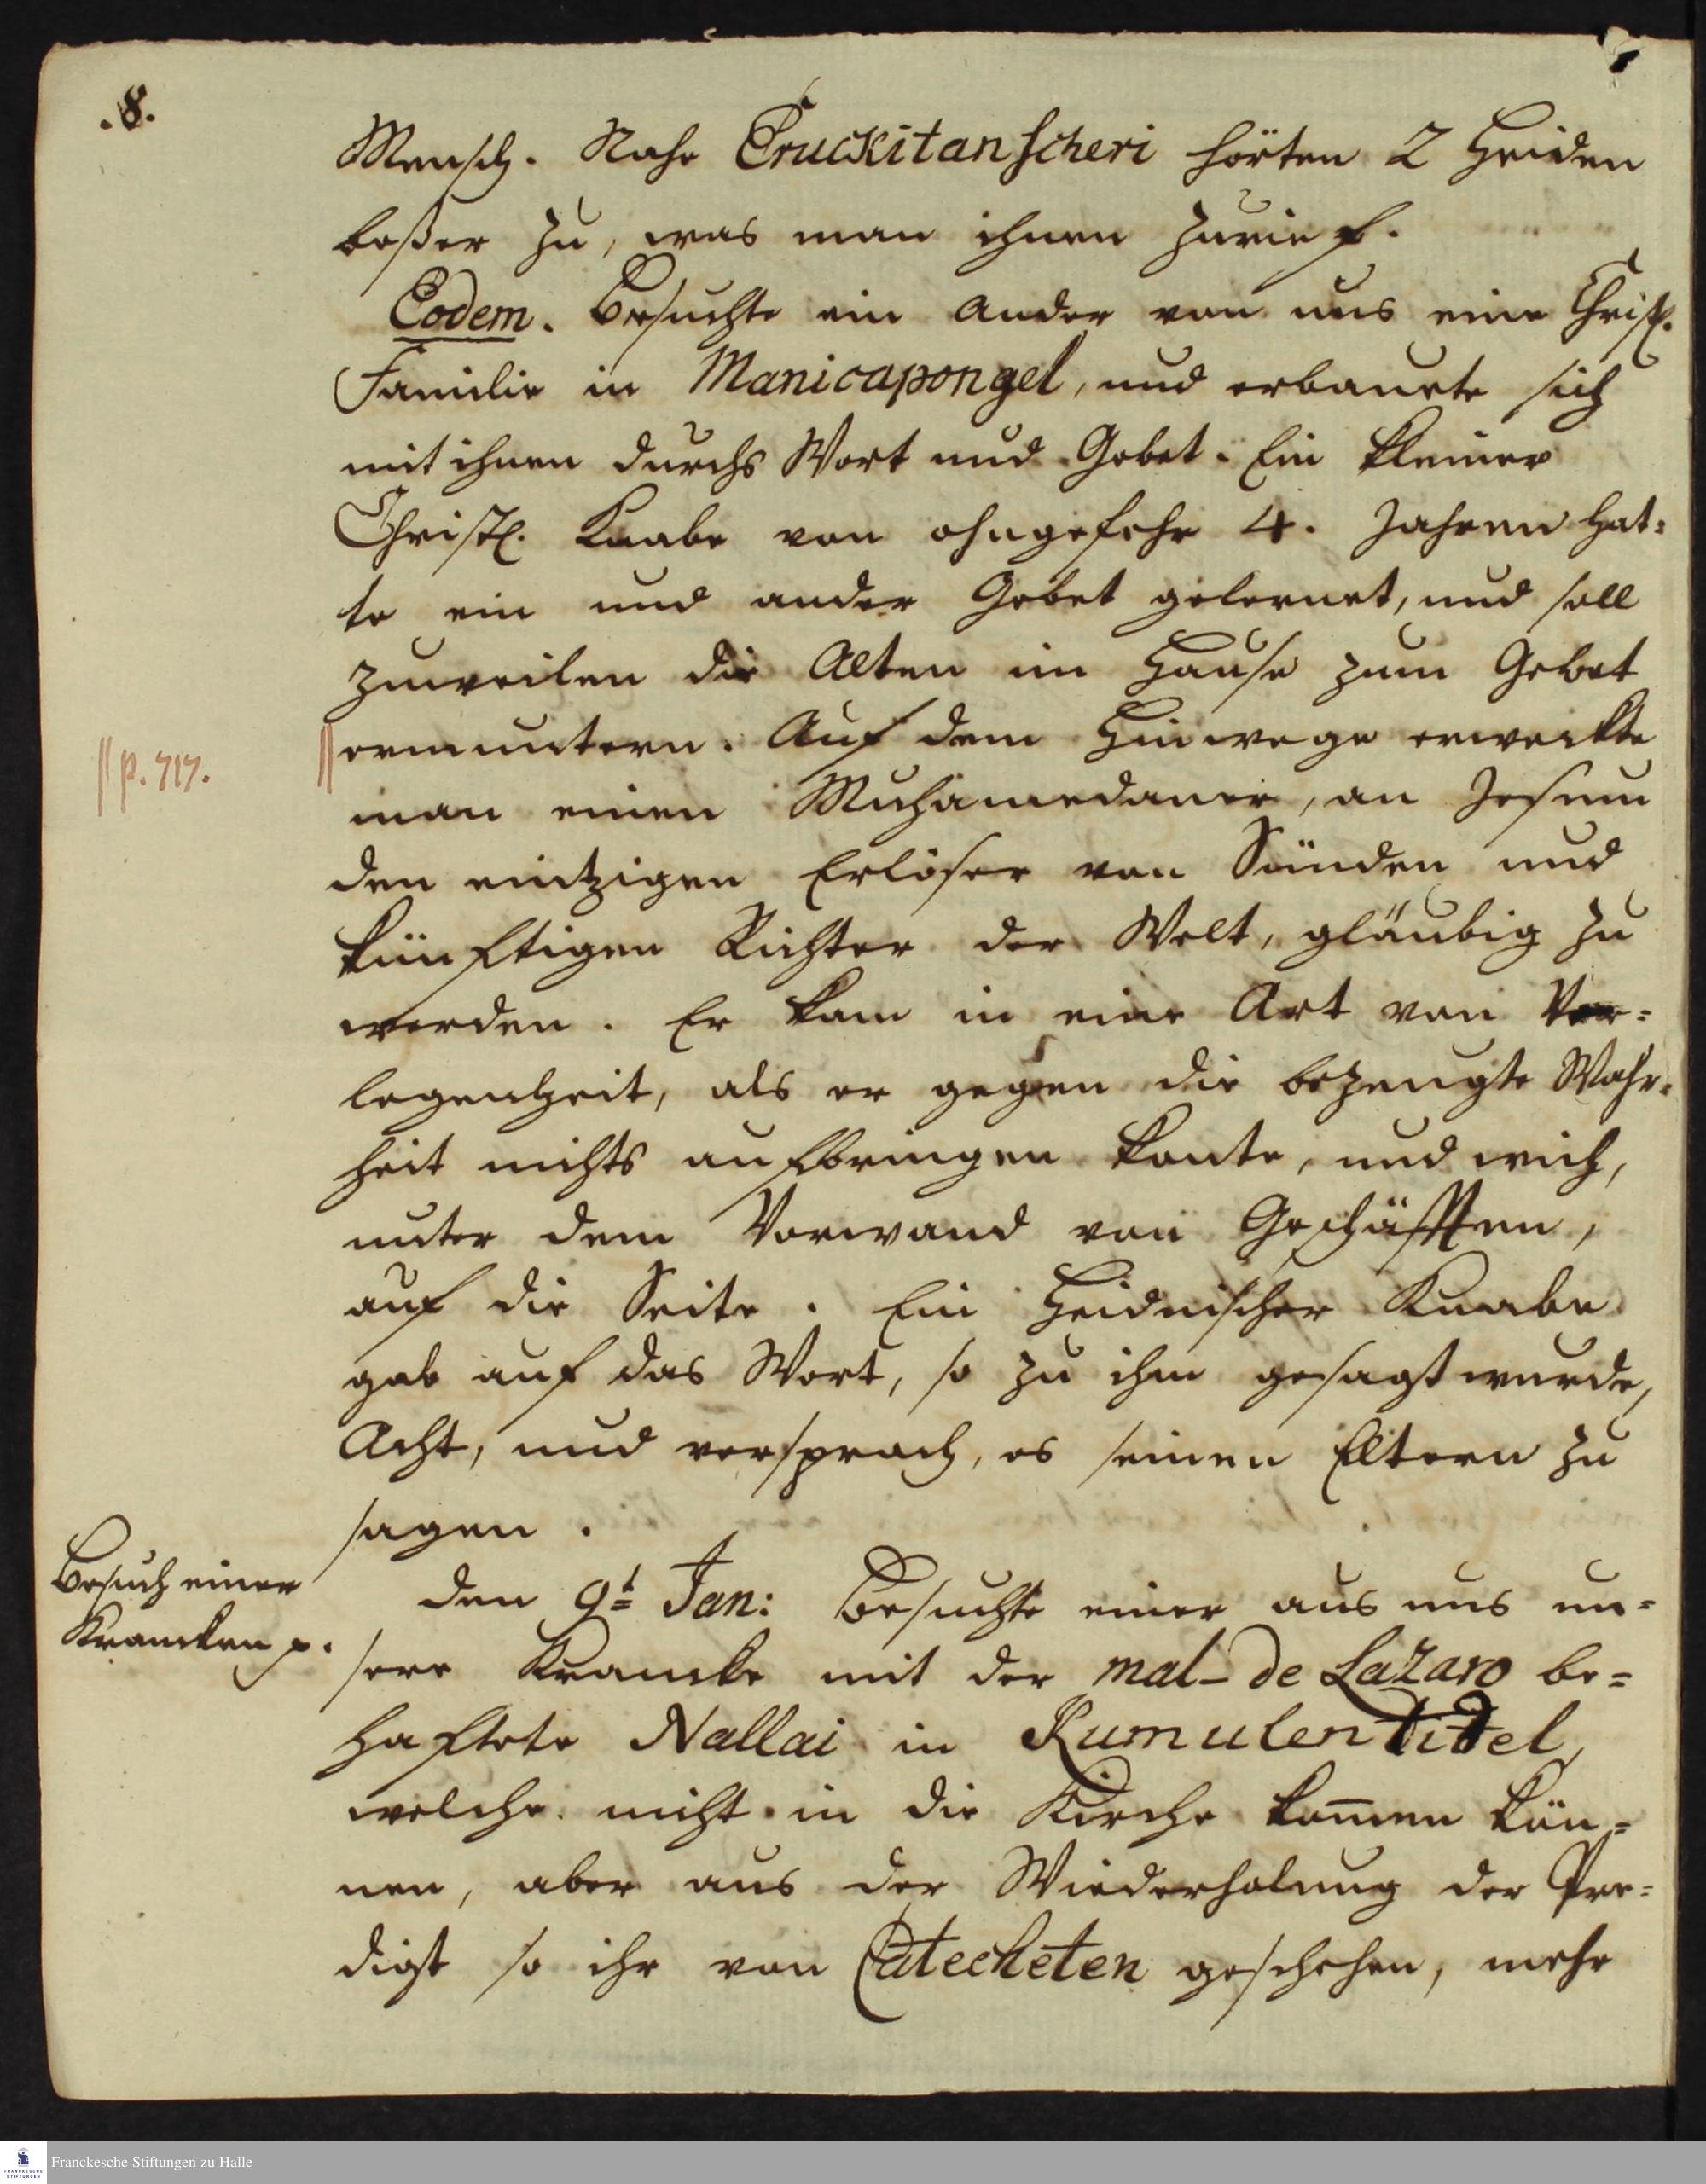 .8.
Mensch. Nahe Eruckitanscheri hörten 2 Heiden
beßer zu, was man ihnen zurief.
Eodem. Besuchte ein ander von uns eine Christl.
Familie in Manicapongel, und erbauete sich
mit ihnen durchs Wort und Gebet. Ein kleiner
Christl. Knabe von ohngefehr 4. Jahren hat=
te ein und ander Gebet gelernet, und soll
zuweilen die Alten im Hause zum Gebet
|| p. 717.
|| ermuntern. Auf dem Hinwege erweckte
man einen Muhamedaner, an Jesum
den eintzigen Erlöser von Sünden und
künftigen Richter der Welt, gläubig zu
werden. Er kam in eine Art von Ver=
legenheit, als er gegen die bezeugte Wahr=
heit nichts aufbringen konte, und wich,
unter dem Vorwand von Geschäfften,
auf die Seite. Ein Heidnischer Knabe
gab auf das Wort, so zu ihm gesagt wurde,
Acht, und versprach, es seinen Eltern zu
sagen.
Besuch einer
Krancken p.
den 9t Jan: Besuchte einer aus uns un=
sere Krancke mit der mal-de Lazaro be=
haftete Nallai in Kumulentidel,
welche nicht in die Kirche kom̄en kön=
nen, aber aus der Wiederholung der Pre=
digt so ihr von Catecheten geschehen, mehr
Franckesche Stiftungen zu Halle